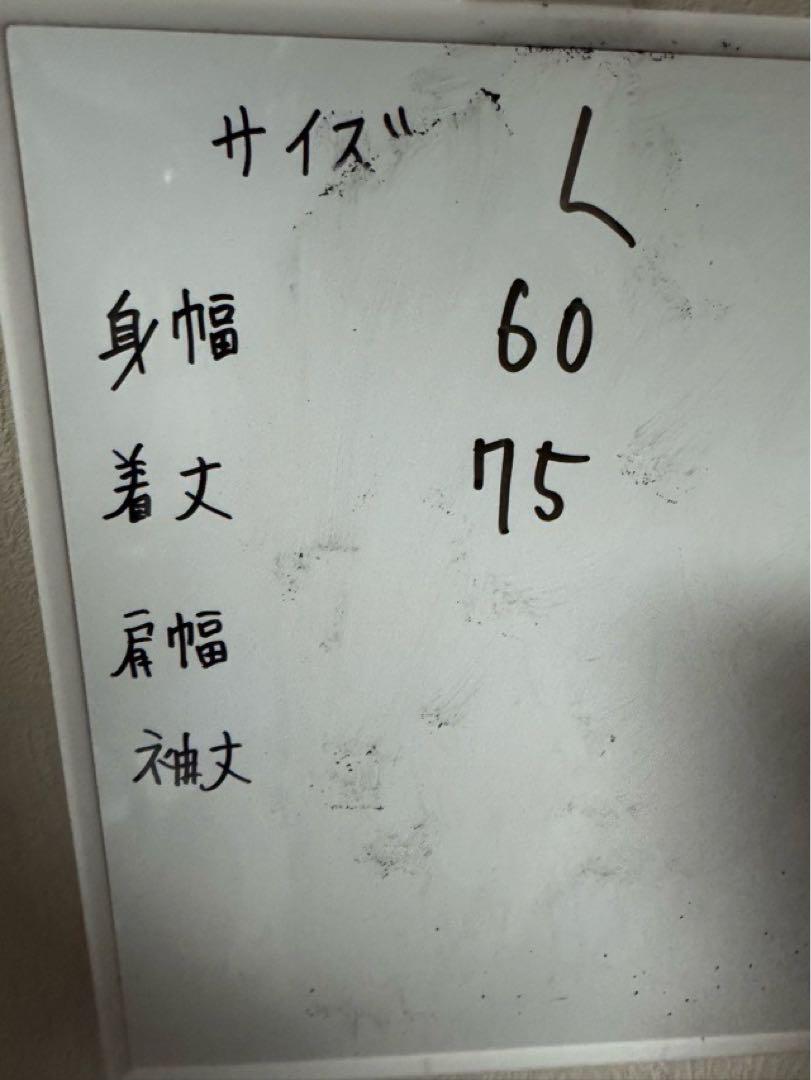 サイズ L
身幅 60
着丈 75
肩幅
袖丈